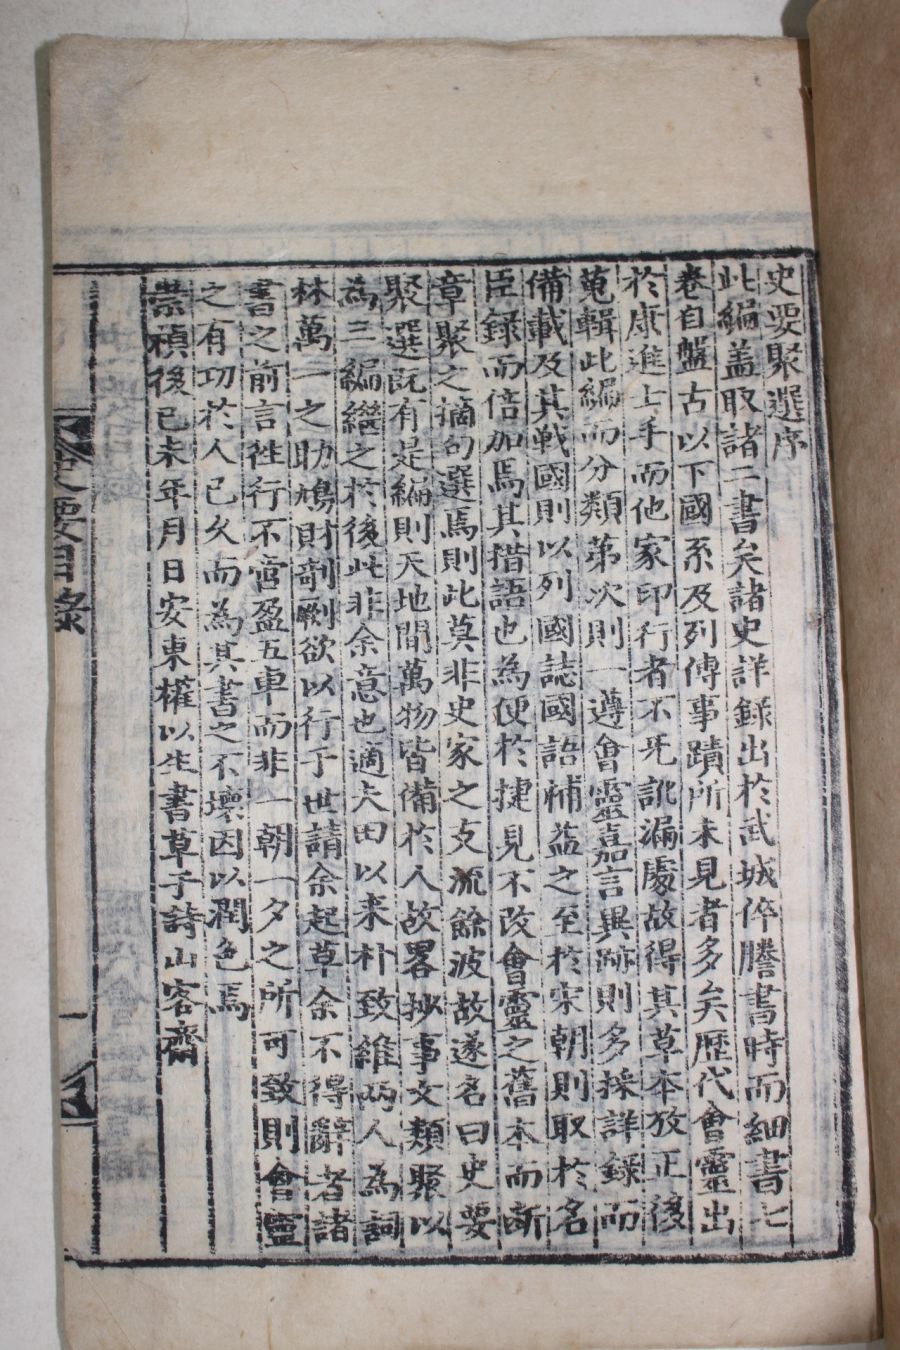 史要聚選序
此編盖取諸二書矣諸史詳錄出於武城倅謄書時而細書七
卷自盤古以下國系及列傳事蹟所未見者多矣歷代會靈出
於康進士手而他家印行者不免訛漏處故得其草本攷正後
蒐輯此編而分類第次則一遵會靈嘉言異跡則多採詳錄而
備載及其戦國則以列國誌國語補益之至於宋朝則取於名
臣錄而倍加焉其措語也為便於捷見不改會靈之舊本而斷
章聚之摘句選焉則此莫非史家之支流餘波故遂名曰史要
聚選既有是編則天地間萬物皆備於人故畧抄事文類聚以
為三編繼之於後此非余意也適夫田以耒朴致維兩人為詞
林萬一之助鳩財剞劂欲以行于世請余起草余不得辭者諸
書之前言徃行不啻盈五車而非一朝一夕之所可致則會靈
之有功於人已久而為其書之不壞因以潤色焉
崇禎後己未年月日安東權以生書草于詩山客齋
史要目錄
一